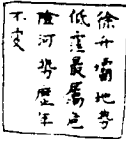 徐升壩地勢
低窪最屬危
險河勢歷年
不